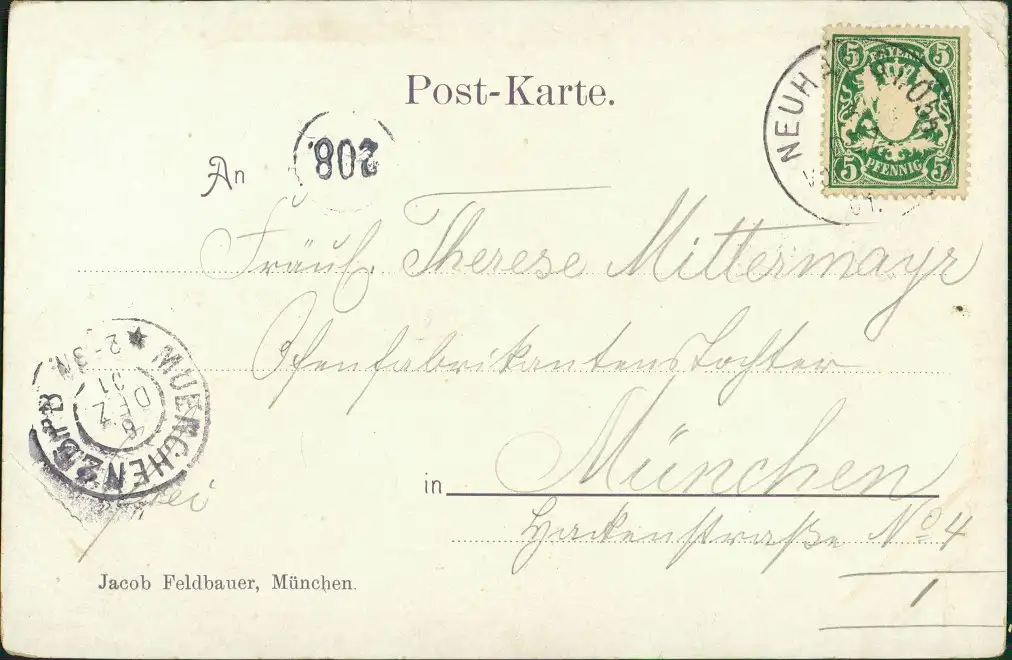 Post-Karte.
BAYERN
5 5
5 PFENNIG 5
NEUH
An
208.
Fräul. Therese Mittermayr
Ofenfabrikantenstochter
MUENCHEN 2 B.P. B
2-3N
6
DEZ
01
in München
frei
Hackenstraße No 4
1
Jacob Feldbauer, München.